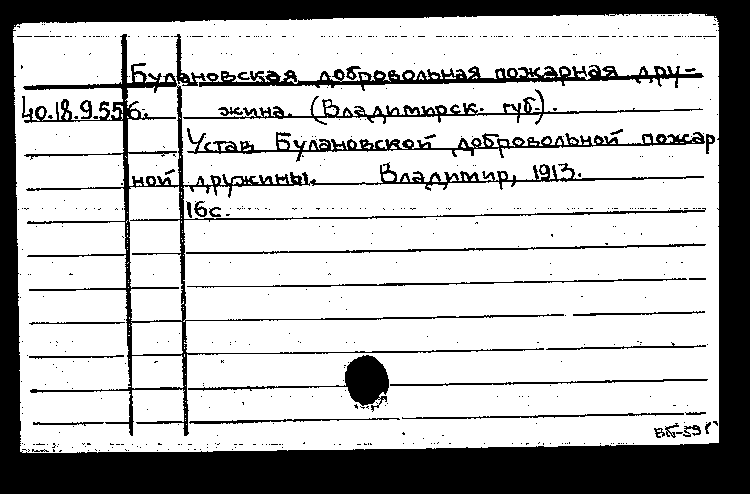 Булановская добровольная пожарная дру-
40.18.9.556. жина. (Владимирск. губ.).
Устав Булановской добровольной пожар
ной дружины. Владимир, 1913.
16с.